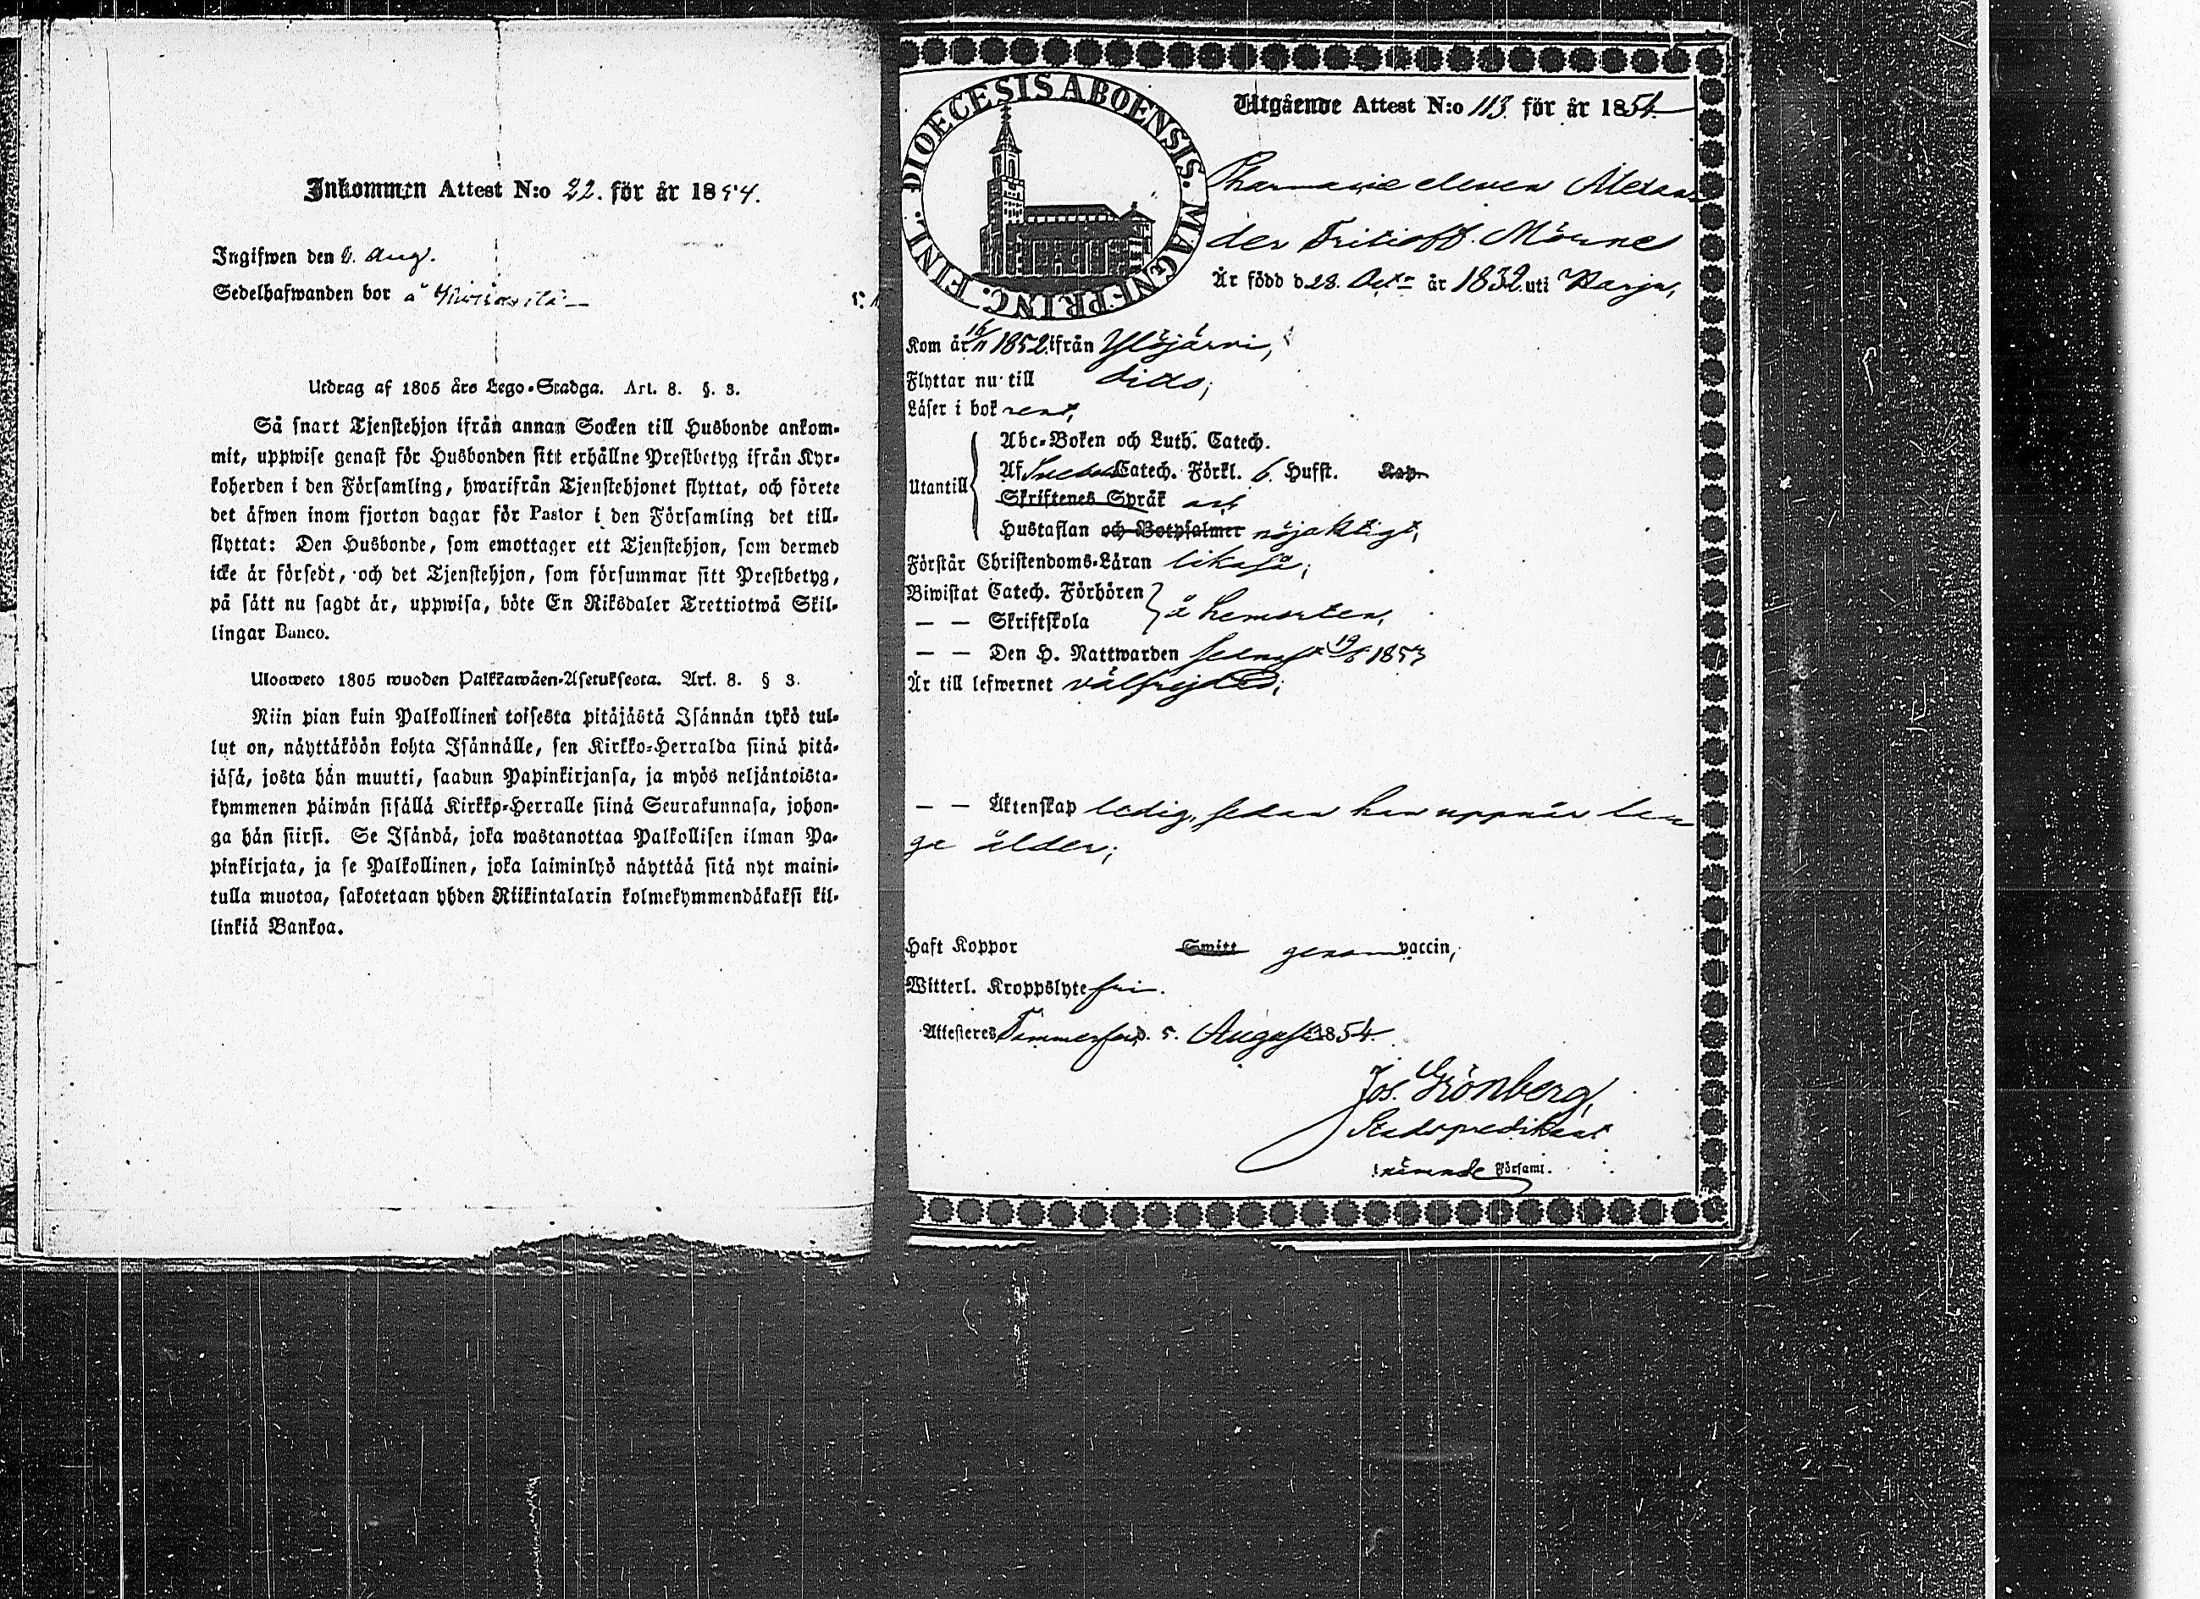 Inkommen Attest N:o 22. för år 1854.
Ingifwen den 6. Aug.
Sedelhafwanden bor å
Utdrag af 1805 års Lego-Stadga. Art. 8. §. 3.
Så snart Tjenstehjon ifrån annan Socken till Husbonde ankom-
mit, uppwise genast för Husbonden sitt erhållne Prestbetyg ifrån Kyr-
koherden i den Församling, hwarifrån Tjenstehjonet flyttat, och förete
det äfwen inom fjorton dagar för Pastor i den Församling det till-
flyttat: Den Husbonde, som emottager ett Tjenstehjon, som dermed
icke är försedt, och det Tjenstehjon, som försummar sitt Prestbetyg,
på sätt nu sagdt är, uppwisa, böte En Riksdaler Trettiotwå Skil-
lingar Banco.
Ulosweto 1805 wuoden Palkkawäen-Asetuksesta. Art. 8. § 3.
Niin pian kuin Palkollinen toisesta pitäjästä Isännän tykö tul-
lut on, näyttäköön kohta Isännälle, sen Kirkko-Herralda siinä pitä-
jäsä, josta hän muutti, saadun Papinkirjansa, ja myös neljäntoista-
kymmenen päiwän sisällä Kirkko-Herralle siinä Seurakunnasa, johon-
ga hän siirsi. Se Isändä, joka wastanottaa Palkollisen ilman Pa-
pinkirjata, ja se Palkollinen, joka laiminlyö näyttää sitä nyt maini-
tulla muotoa, sakotetaan yhden Riikintalarin kolmekymmendäkaksi kil-
linkiä Bankoa.
DIOECESIS ABOENSIS. MAGNI PRINC. FINL.
Utgående Attest N:o 113. för år 1854.
Pharmacie eleven Alexan
der Fritioff Mörne
Är född d. 28. Oct. år 1832. uti Karja,
Kom år 16/11 1852. ifrån Ylöjärvi,
Flyttar nu till dito,
Läser i bok rent,
Utantill
Abc-Boken och Luth. Catech.
Af Svebel. Catech. Förkl. 6. Hufst. Kap.
Skriftenes Språk och
Hustaflan och Botpsalmer nöjaktigt,
Förstår Christendoms-Läran likaså;
Biwistat Catech. Förhören
— — Skriftskola
å hemorten,
— — Den H. Nattwarden senast 19/6 1853
Är till lefwernet välfrejdad;
— — Äktenskap ledig, sedan han uppnår lau
ga ålder;
Haft Koppor Smitt genom vaccin,
Witterl. Kroppslyte fri.
Attesteres Tammerfors d. 5. August 1854.
Jos. Grönberg,
Stadspredikant
i nämnde Församl.